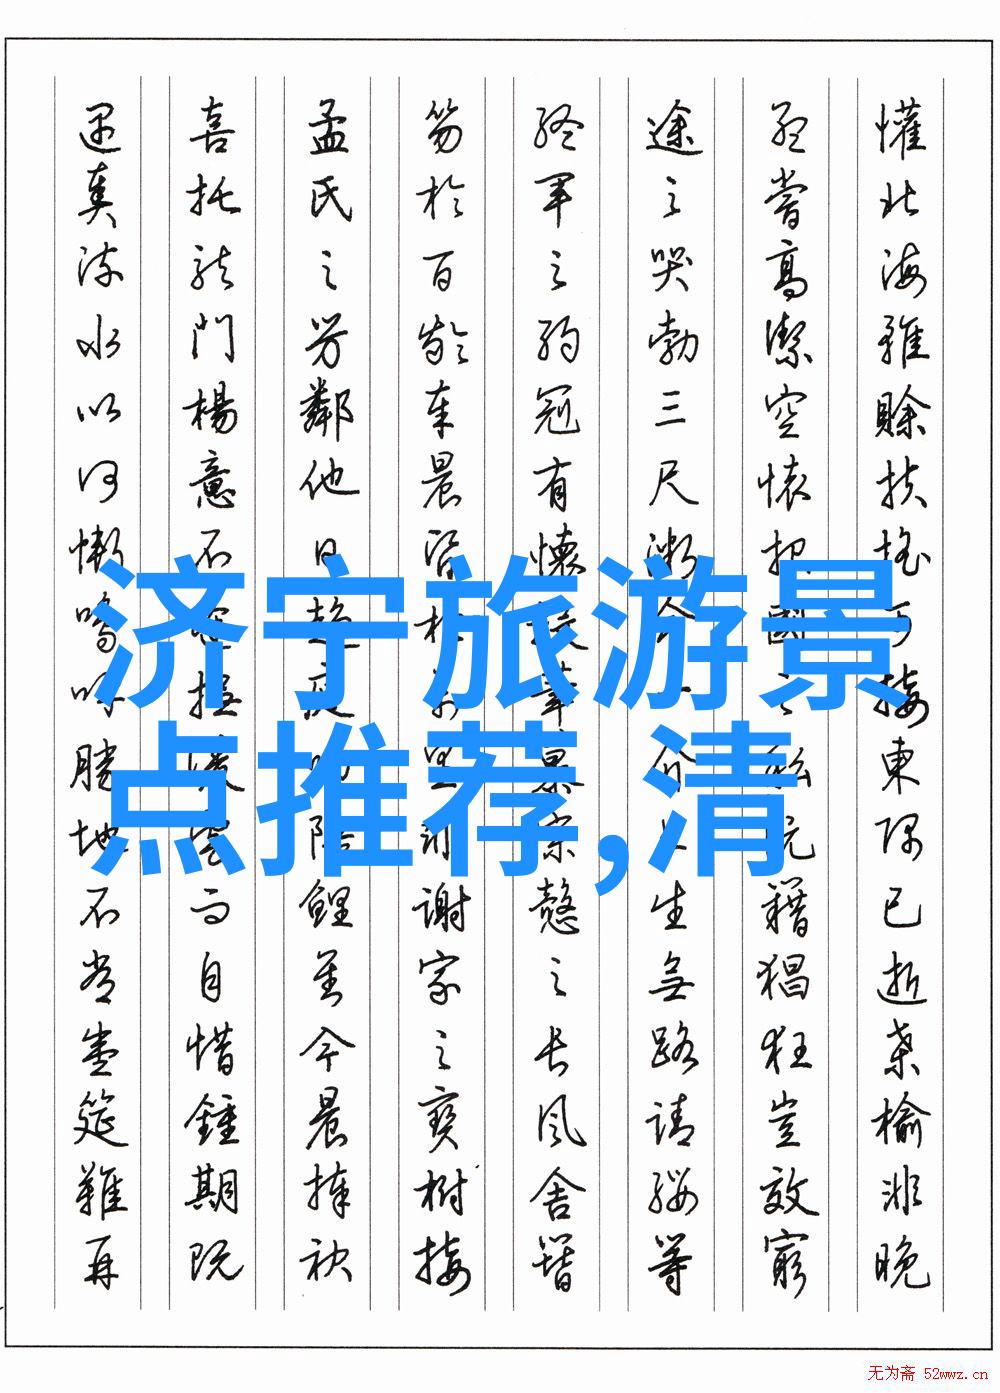 懽北海雖賒扶搖可接東隅已逝桑榆非晚
孟嘗高潔空懷报國之私阮籍猖狂豈效窮
途之哭勃三尺微命一介書生無路請纓等
終軍之弱冠有懷投筆慕宗愨之長風舍簪
笏於百齡奉晨昏於萬里非謝家之寶樹接
孟氏之芳鄰他日趨庭叨陪鯉對今晨捧袂
喜托龍門楊意不逢撫凌雲而自惜鍾期既
遇奏流水以何慚嗚呼勝地不常盛筵難再
济宁旅游景
点推荐,清
无为斋 52wwz.cn